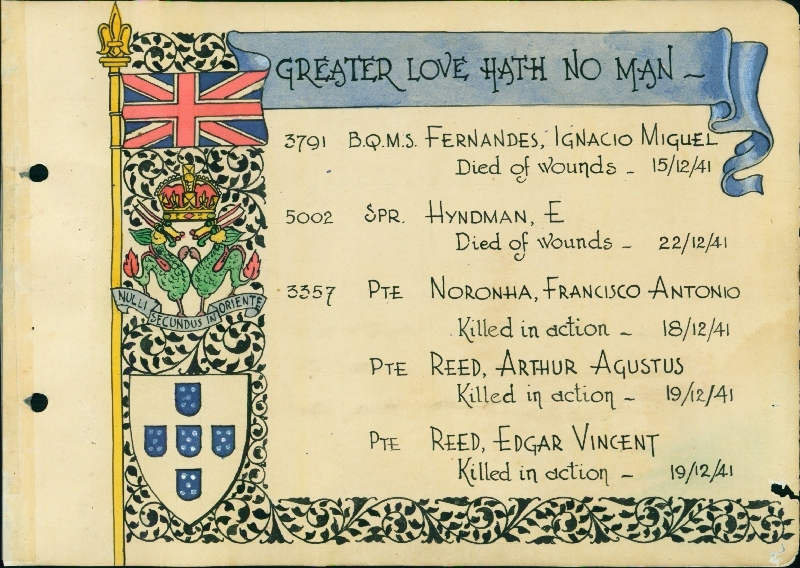 GREATER LOVE HATH NO MAN ~
3791 B.Q.M.S. FERNANDES, IGNACIO MIGUEL
Died of wounds - 15/12/41
5002 SPR. HYNDMAN, E
Died of wounds - 22/12/41
3357 PTE NORONHA, FRANCISCO ANTONIO
Killed in action - 18/12/41
PTE REED, ARTHUR AGUSTUS
Killed in action - 19/12/41
PTE REED, EDGAR VINCENT
Killed in action - 19/12/41
NULLI SECUNDUS IN ORIENTE